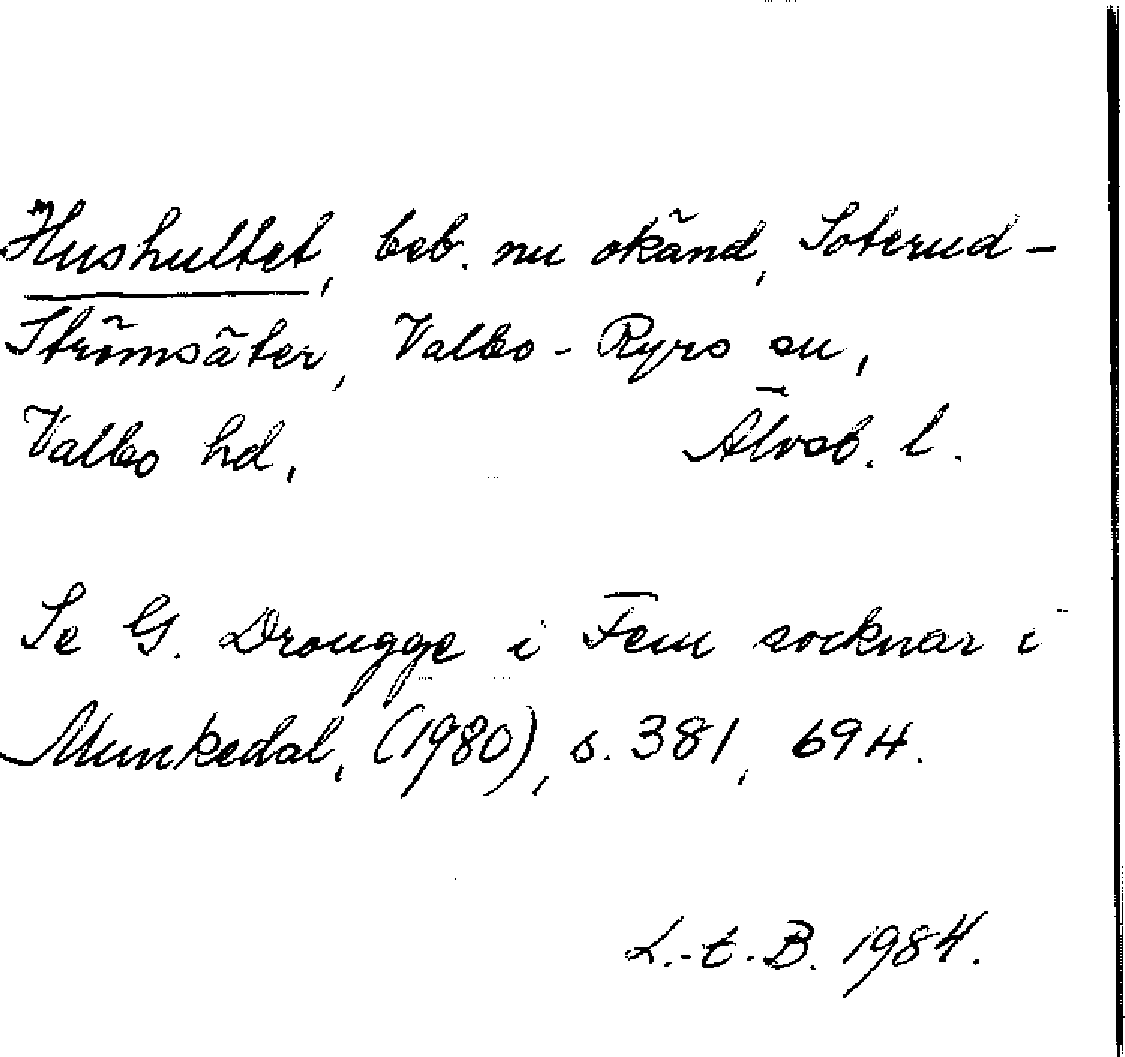 Hushultet, beb. nu okänd, Soterud-
Strömsäter, Valbo-Ryrs sn,
Valbo hd, Älvsb. l.
Se G. Drougge i Fem socknar i
Munkedal, (1980), s. 381, 694.
L.-t. B. 1984.